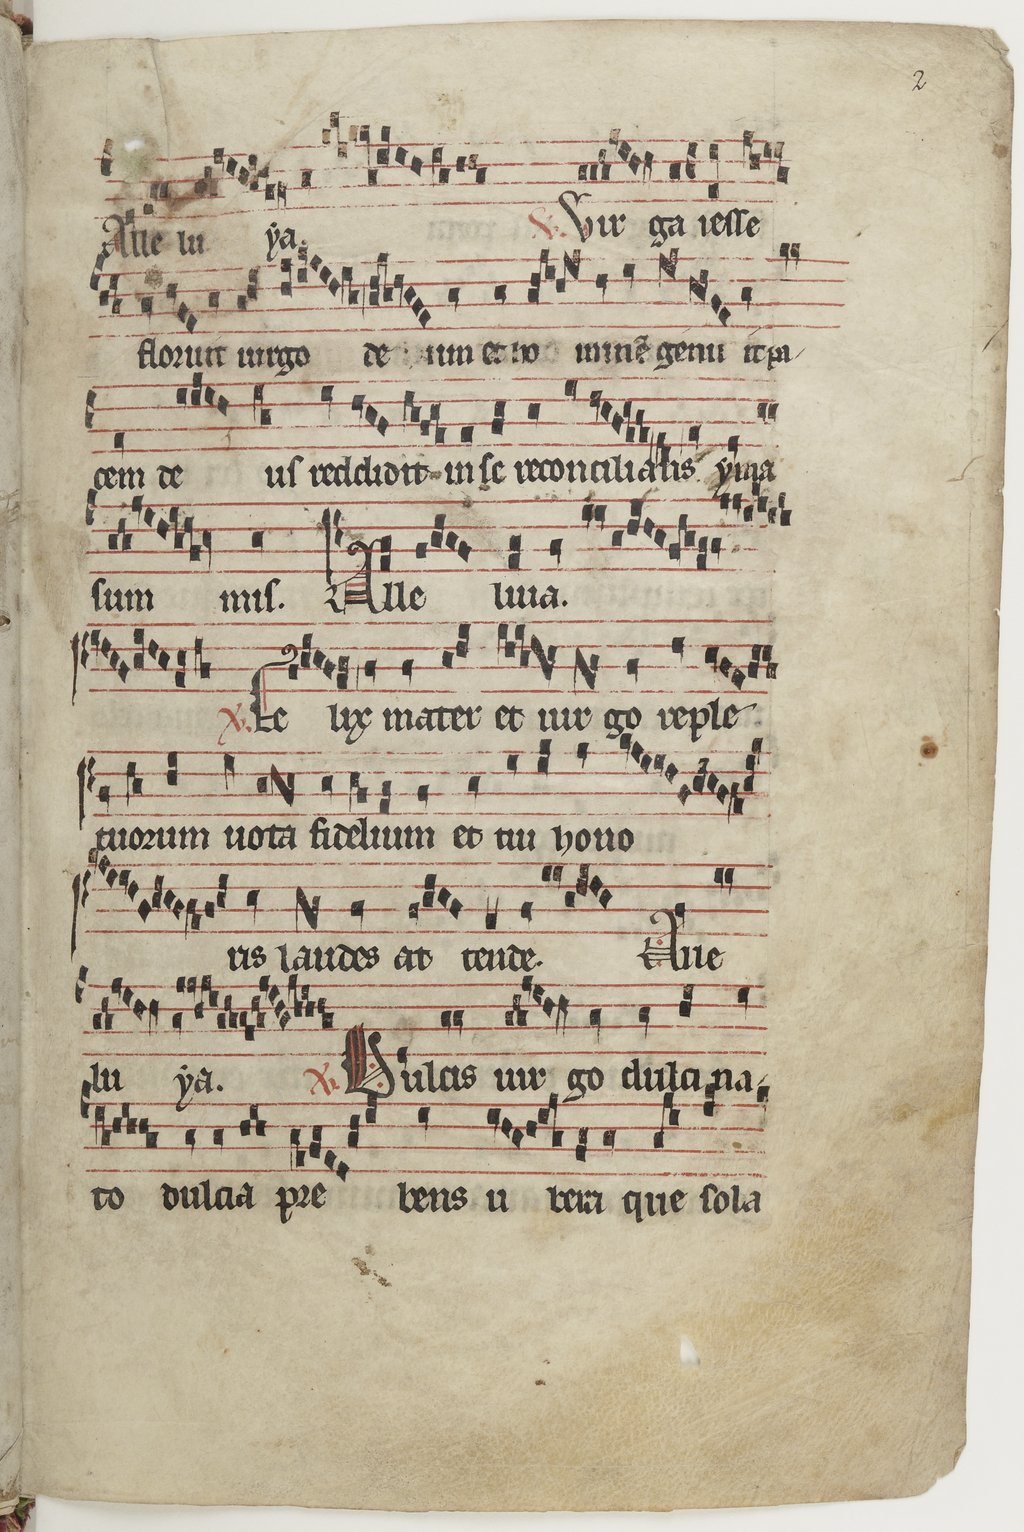 2
Alle lu ẏa. V. Vir ga iesse
floruit uirgo de um et ho minē genu it pa
cem de us reddidit in se reconcilians ẏma
sum mis. Alle luia.
V. Fe lix mater et uir go reple
tuorum uota fidelium et tui hono
ris laudes at tende. Alle
lu ẏa. V. Dulcis uir go dulci na
to dulcia pre bens u bera que sola